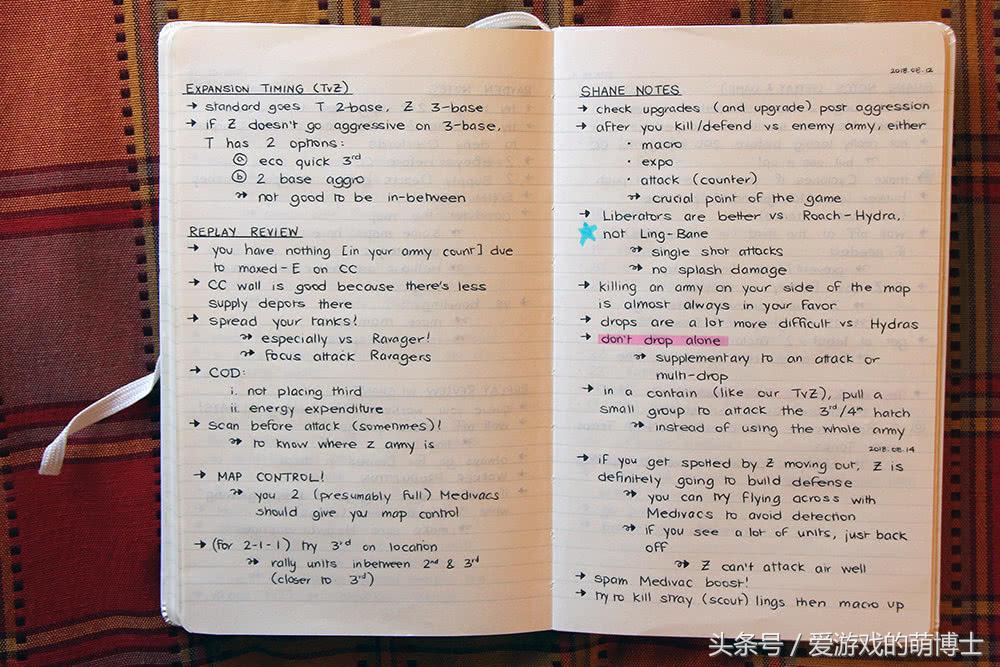 EXPANSION TIMING (TvZ)
→ standard goes T 2-base, Z 3-base
→ if Z doesn't go aggressive on 3-base,
T has 2 options:
ⓐ eco quick 3rd
ⓑ 2 base aggro
↠ not good to be in-between
REPLAY REVIEW
→ you have nothing [in your army count] due
to maxed-E on CC
→ CC wall is good because there's less
supply depots there
→ spread your tanks!
↠ especially vs Ravager!
↠ focus attack Ravagers
→ COD:
i. not placing third
ii. energy expenditure
→ scan before attack (sometimes)!
↠ to know where Z army is
→ MAP CONTROL!
↠ you 2 (presumably full) Medivacs
should give you map control
→ (for 2-1-1) try 3rd on location
↠ rally units inbetween 2nd & 3rd
(closer to 3rd)
2018.08.12
SHANE NOTES
→ check upgrades (and upgrade) post aggression
→ after you kill/defend vs enemy army, either
· macro
· expo
· attack (counter)
↠ crucial point of the game
→ Liberators are better vs Roach-Hydra,
not Ling-Bane
↠ single shot attacks
↠ no splash damage
→ killing an army on your side of the map
is almost always in your favor
→ drops are a lot more difficult vs Hydras
→ don't drop alone
↠ supplementary to an attack or
multi-drop
→ in a contain (like our TvZ), pull a
small group to attack the 3rd/4th hatch
↠ instead of using the whole army
2018.08.14
→ if you get spotted by Z moving out, Z is
definitely going to build defense
↠ you can try flying across with
Medivacs to avoid detection
↠ if you see a lot of units, just back
off
↠ Z can't attack air well
→ spam Medivac boost!
→ try to kill stray (scout) lings then macro up
头条号 / 爱游戏的萌博士